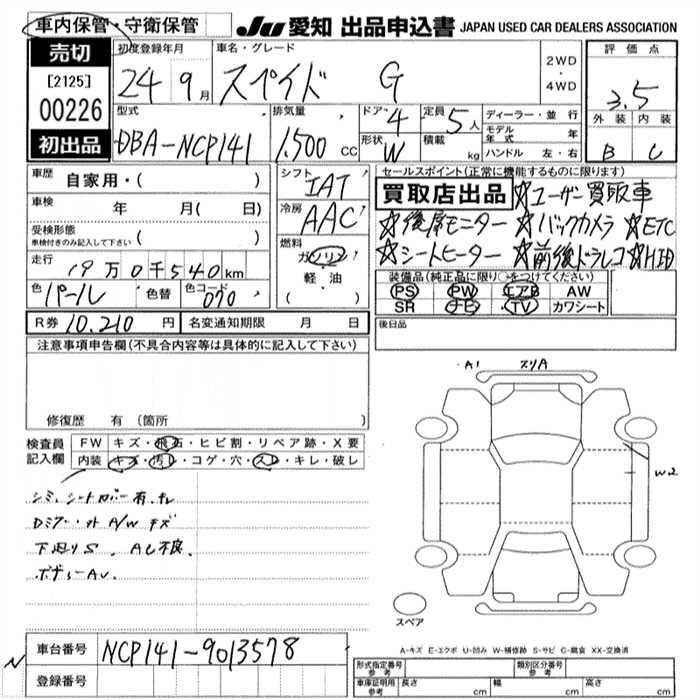 車内保管・守衛保管
JU 愛知 出品申込書 JAPAN USED CAR DEALERS ASSOCIATION
売切
[2125]
00226
初出品
初度登録年月
24 9月
車名・グレード
スペイド G
2WD
・
4WD
評価点
3.5
外装 内装
B C
型式
DBA-NCP141
排気量
1.500 CC
ドア 4
形状 W
定員 5人
積載 kg
ディーラー・並行
モデル年式 年
ハンドル 左・右
車歴 自家用・( )
車検 年 月( 日)
受検形態
車検付きのみ記入して下さい ( )
走行 19万0千540km
色 パール 色替 色コード 070
シフト IAT
冷房 AAC
燃料
ガソリン
軽油
( )
セールスポイント(正常に機能するものに限ります)
買取店出品 ☆ユーザー買取車
☆後席モニター ☆バックカメラ ☆ETC
☆シートヒーター ☆前後ドラレコ ☆HID
装備品(純正品に限り○をつけてください)
PS PW エアB AW
SR ナビ TV カワシート
R券 10.210 円 名変通知期限 月 日
後日品
注意事項申告欄(不具合内容等は具体的に記入して下さい)
修復歴 有 (箇所 )
検査員記入欄
FW キズ・飛石・ヒビ割・リペア跡・X要
内装 キズ・汚レ・コゲ・穴・スレ・キレ・破レ
シミ、シートカバー有、キレ
Dミラー・外 A/W キズ
下廻りS、AC不良、
ボデーAU.
A1 スリA
W2
スペア
A-キズ E-エクボ U-凹み W-補修跡 S-サビ C-腐食 XX-交換済
車台番号 NCP141-9013578
N
登録番号
形式指定番号 参考
類別区分番号 参考
車庫証明用 参考 長さ cm 幅 cm 高さ cm